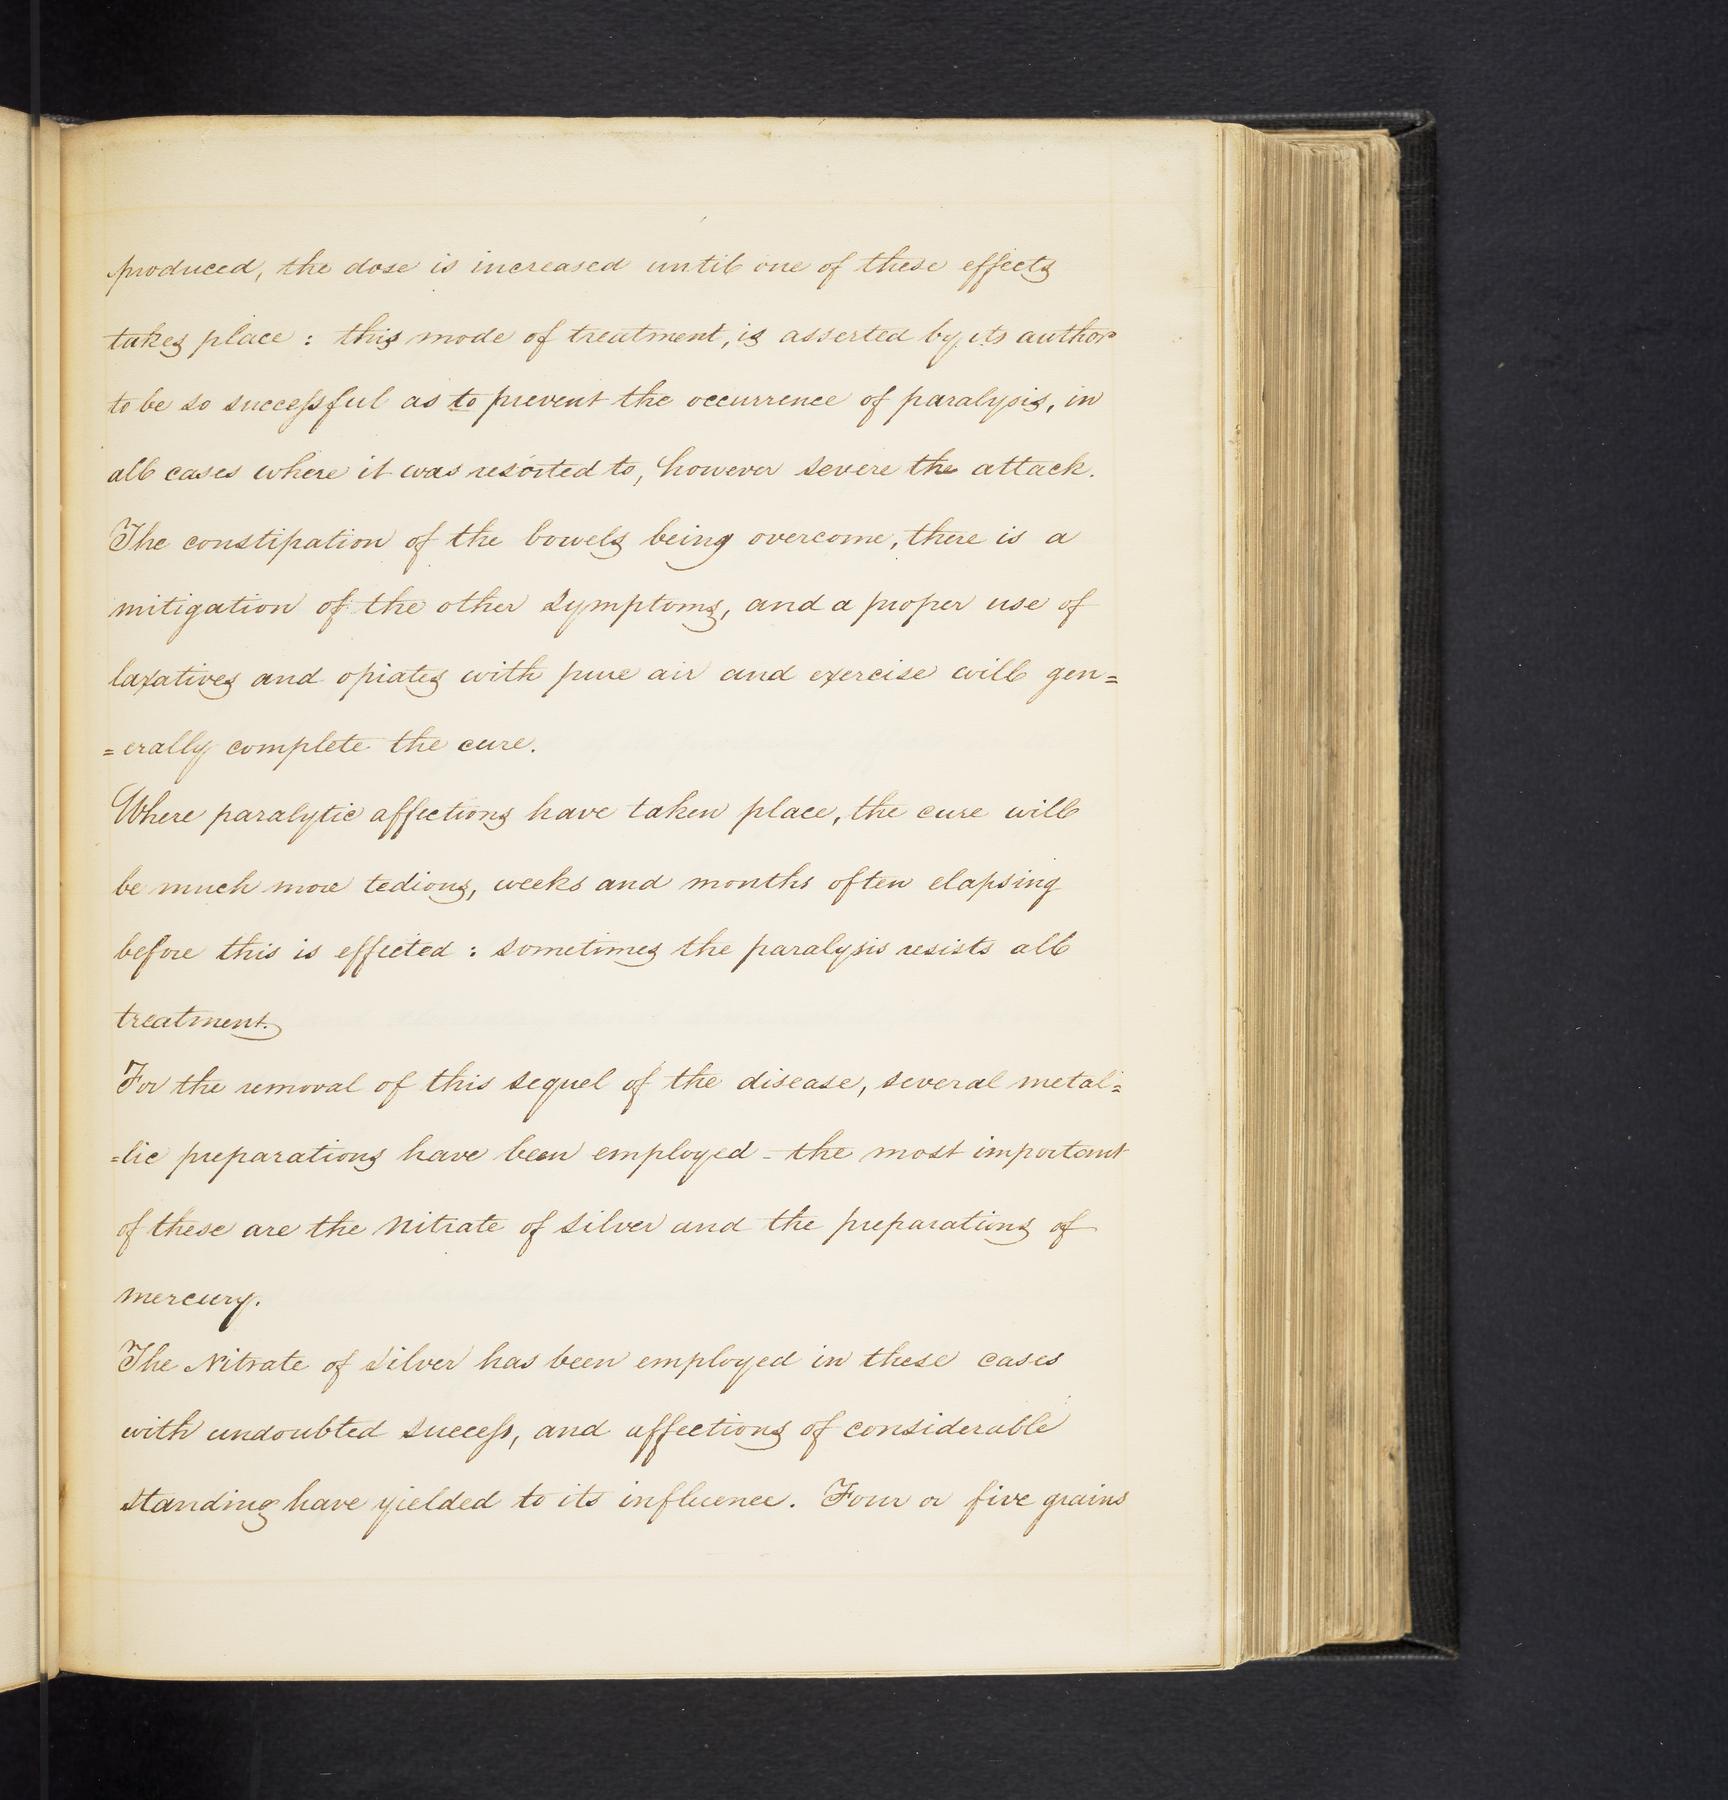 produced, the dose is increased until one of these effects
takes place : this mode of treatment, is asserted by its author
to be so successful as to prevent the occurrence of paralysis, in
all cases where it was resorted to, however severe the attack.
The constipation of the bowels being overcome, there is a
mitigation of the other symptoms, and a proper use of
laxatives and opiates with pure air and exercise will gen=
=erally complete the cure.
Where paralytic affections have taken place, the cure will
be much more tedious, weeks and months often elapsing
before this is effected : sometimes the paralysis resists all
treatment.
For the removal of this sequel of the disease, several metal=
=lic preparations have been employed - the most important
of these are the Nitrate of Silver and the preparations of
mercury.
The Nitrate of Silver has been employed in these cases
with undoubted success, and affections of considerable
standing have yielded to its influence. Four or five grains